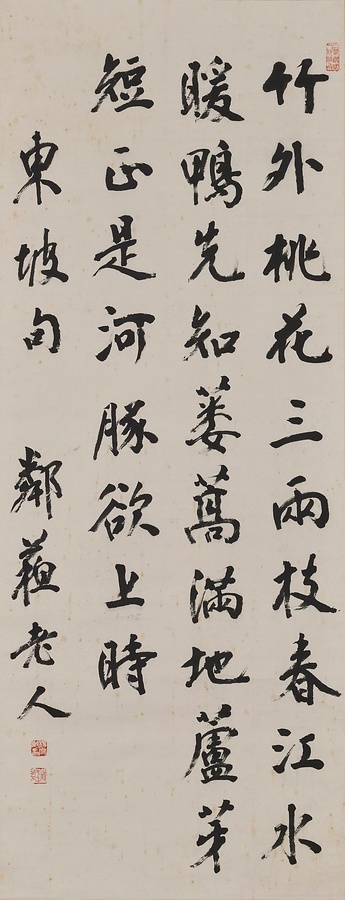 竹外桃花三兩枝春江水
暖鴨先知蔞蒿滿地蘆芽
短正是河豚欲上時
東坡句
鄰蘓老人